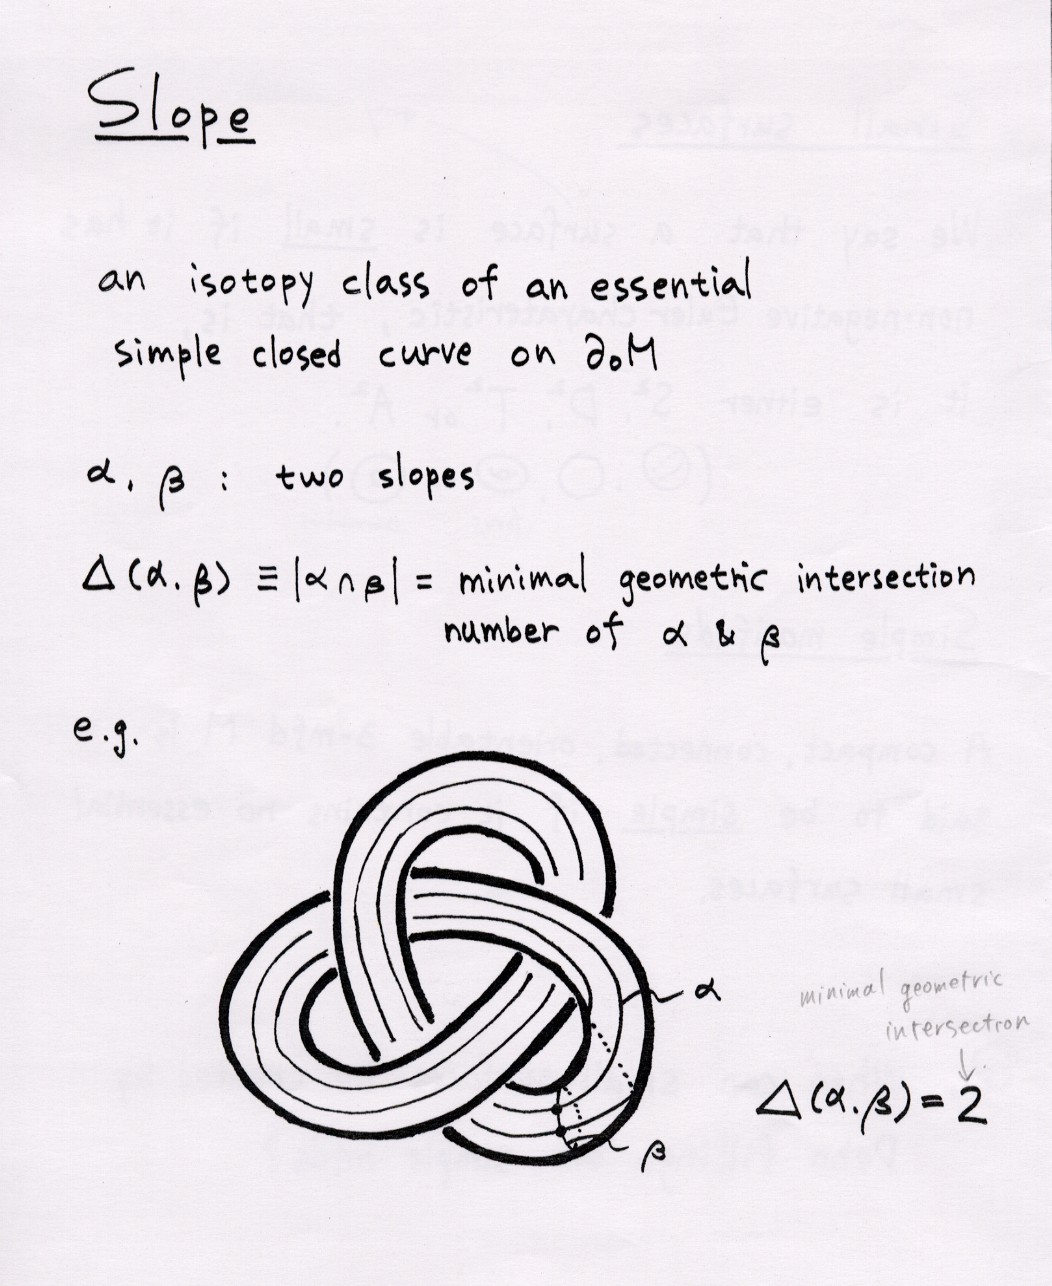 Slope
an isotopy class of an essential
simple closed curve on ∂₀M
α, β : two slopes
Δ(α, β) ≡ |α ∩ β| = minimal geometric intersection
number of α & β
e.g.
α
minimal geometric
intersection
↓
Δ(α, β) = 2
β